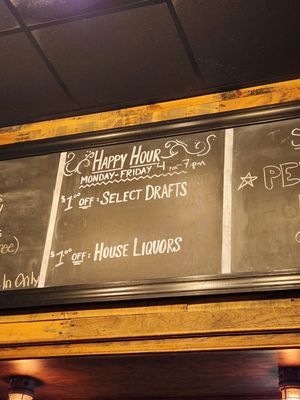 Happy Hour
Monday-Friday 4pm-7pm
$1.00 off: Select Drafts
$1.00 off: House Liquors
In Only